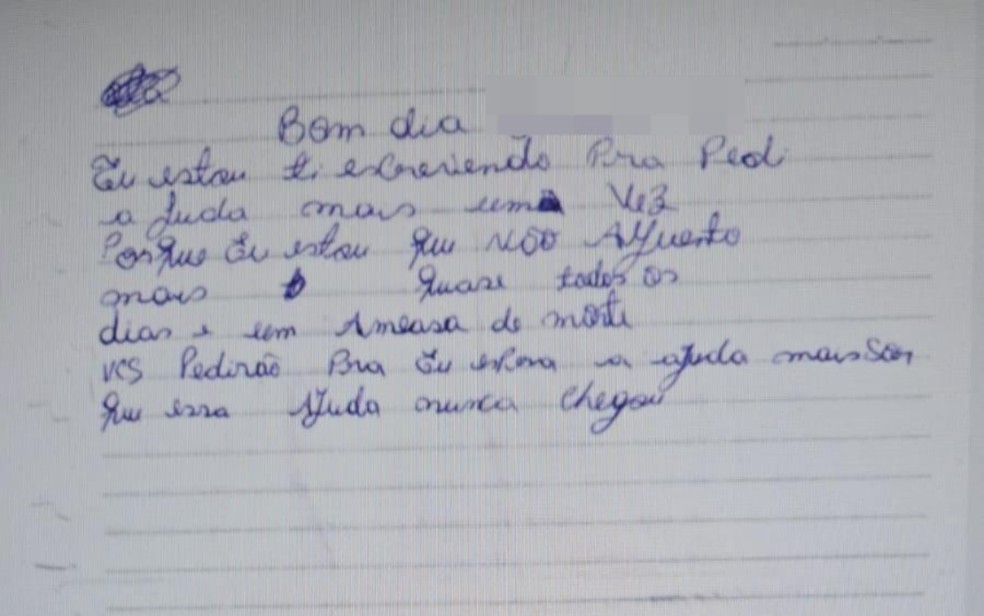 Bom dia
Eu estou ti escrevendo Pra Pedi
a Juda mais uma Vez
Porque Eu estou que NÃO AGuento
mais quase todos os
dias e um Ameasa de morte
VCS Pedirão Pra Eu espera a ajuda mais Son
que essa Ajuda nunca chegou